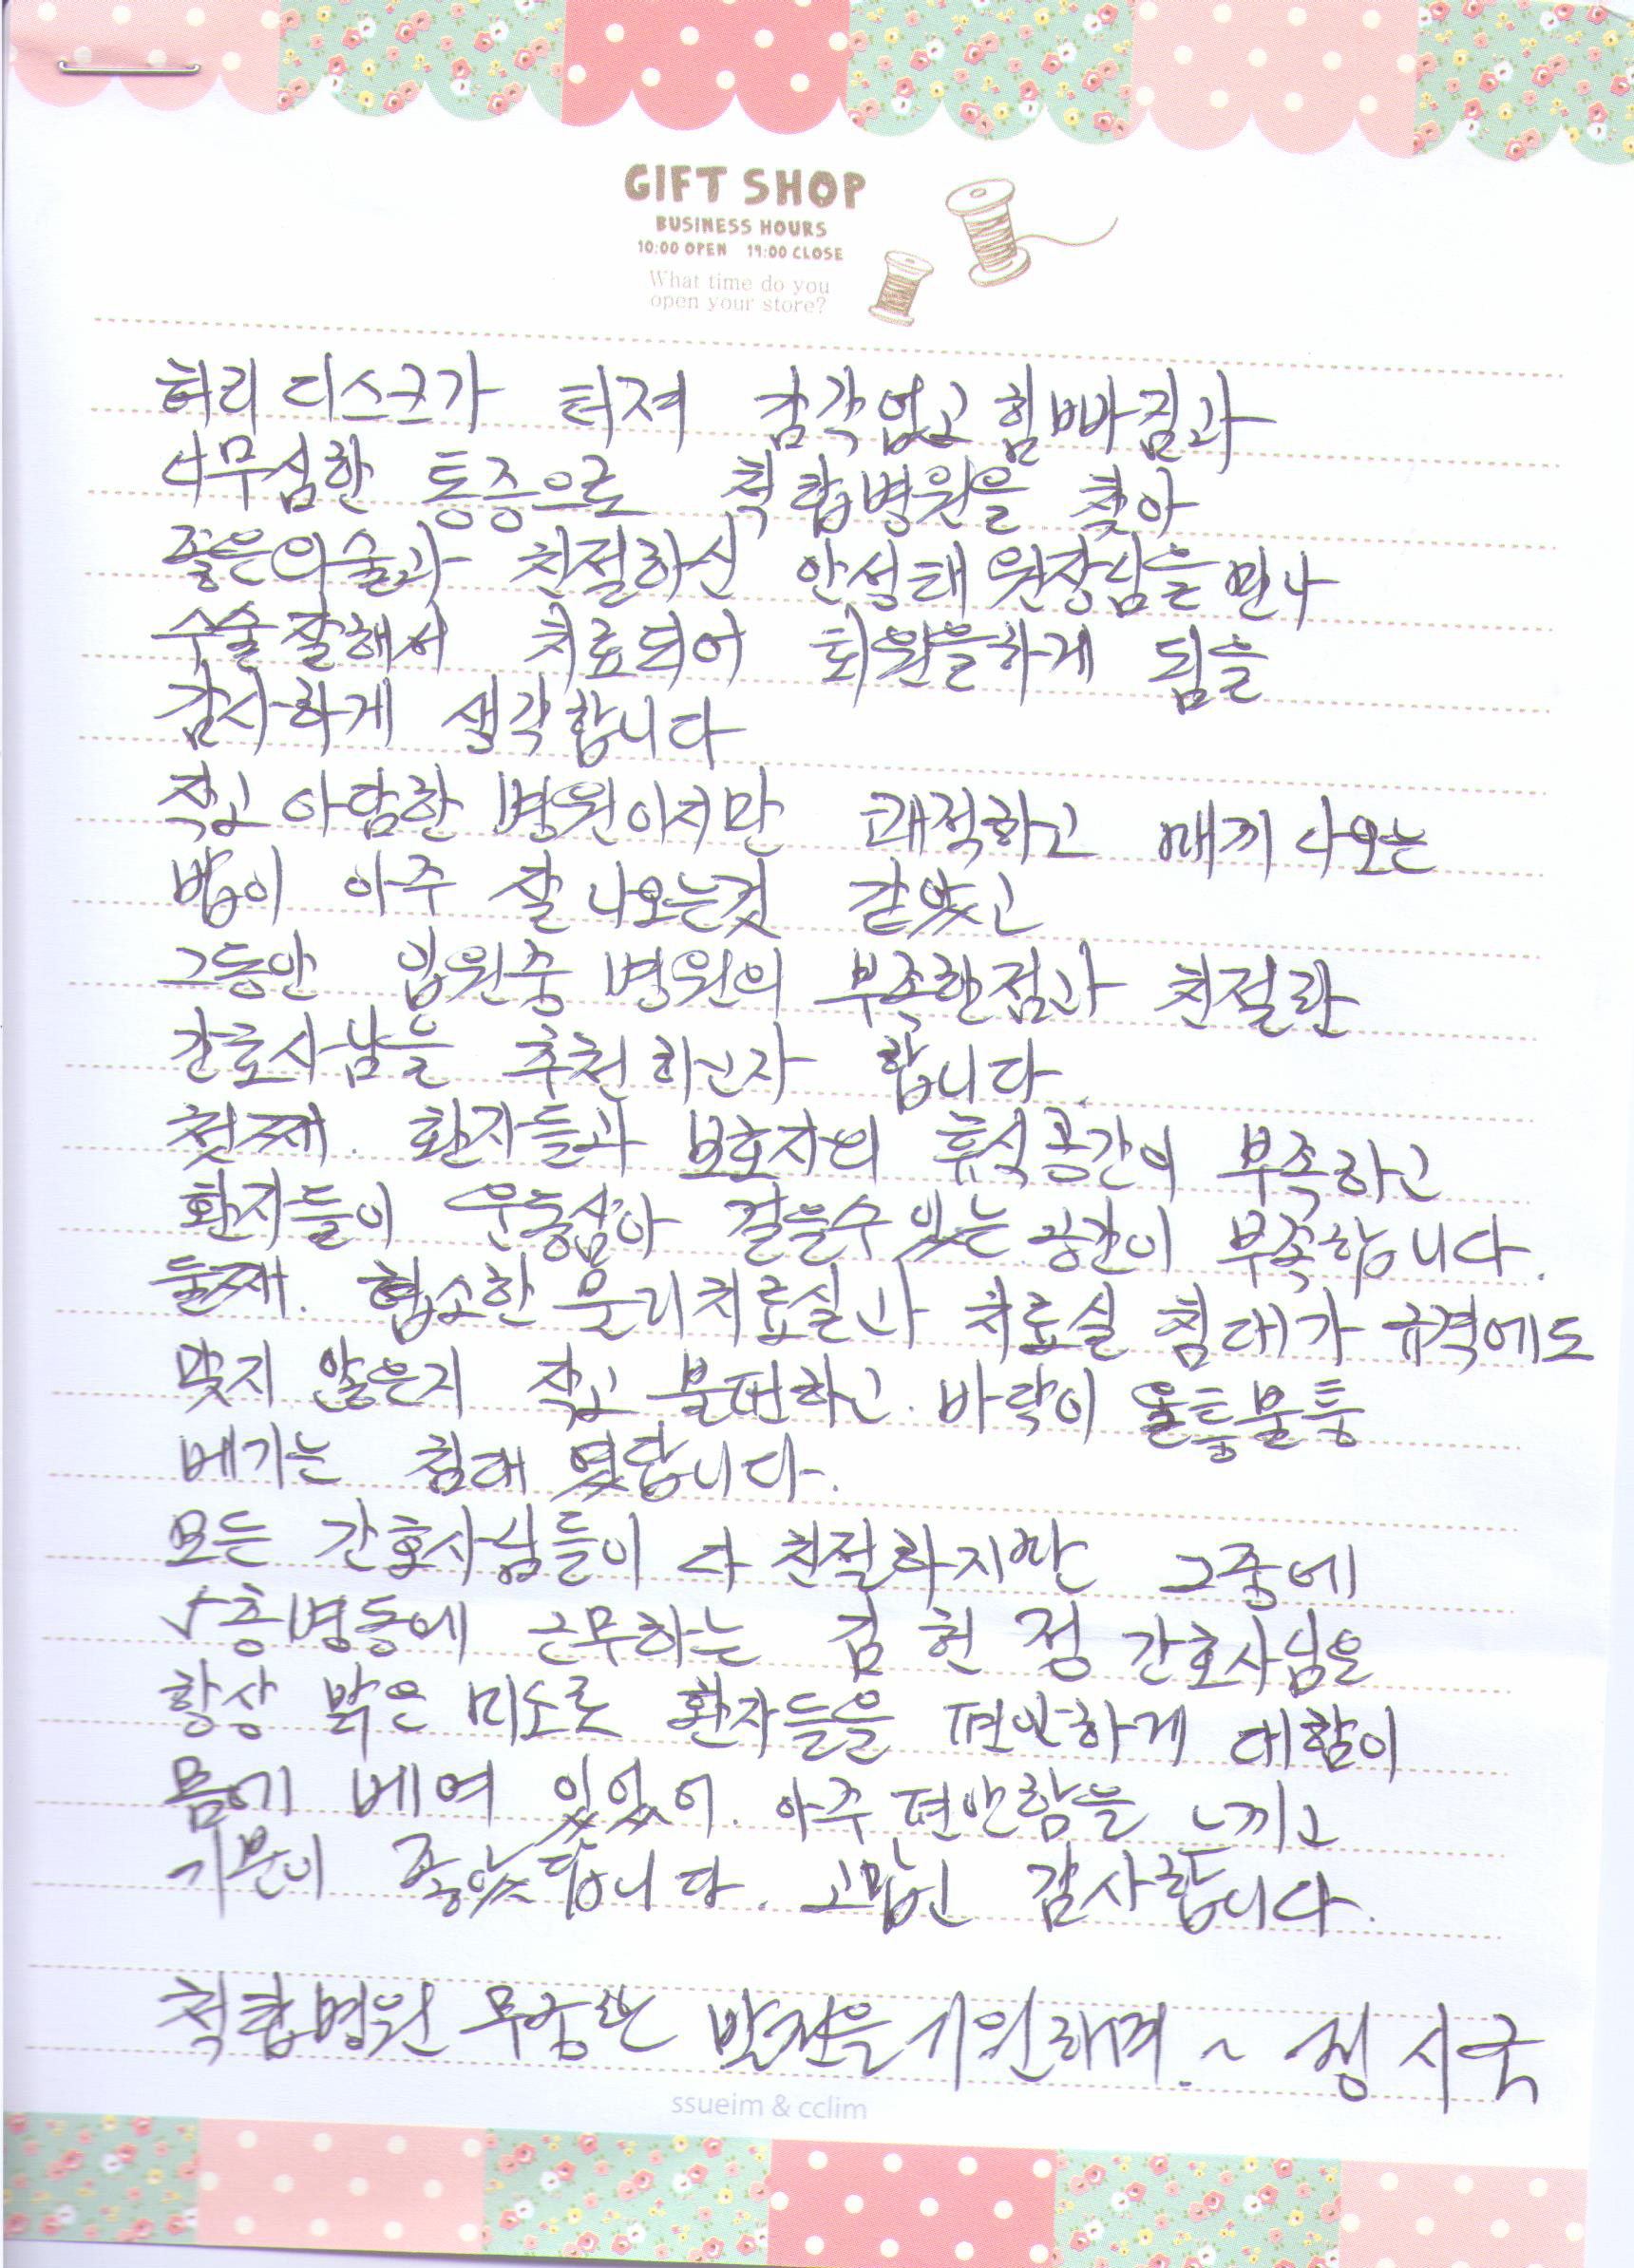 GIFT SHOP
BUSINESS HOURS
10:00 OPEN 19:00 CLOSE
What time do you
open your store?
허리 디스크가 터져 감각없고 힘빠짐과
너무심한 통증으로 척탑병원을 찾아
좋은의술과 친절하신 안성태 원장님을 만나
수술 잘해서 치료되어 퇴원을하게 됨을
감사하게 생각합니다
작고 아담한 병원이지만 쾌적하고 매끼 나오는
밥이 아주 잘 나오는것 같았고
그동안 입원중 병원의 부족한점과 친절한
간호사님을 추천하고자 합니다.
첫째. 환자들과 보호자의 휴식공간이 부족하고
환자들이 운동삼아 걸을수 있는 공간이 부족합니다.
둘째. 협소한 물리치료실과 치료실 침대가 규격에도
맞지 않은지 작고 불편하고. 바닥이 울퉁불퉁
베기는 침대 였답니다.
모든 간호사님들이 다 친절하지만 그중에
5층병동에 근무하는 김 현 정 간호사님은
항상 밝은 미소로 환자들을 편안하게 대함이
몸에 베여 있었어. 아주 편안함을 느끼고
기분이 좋았답니다. 고맙고 감사합니다.
척탑병원 무궁한 발전을 기원하며. ~ 정 시국
ssueim & cclim